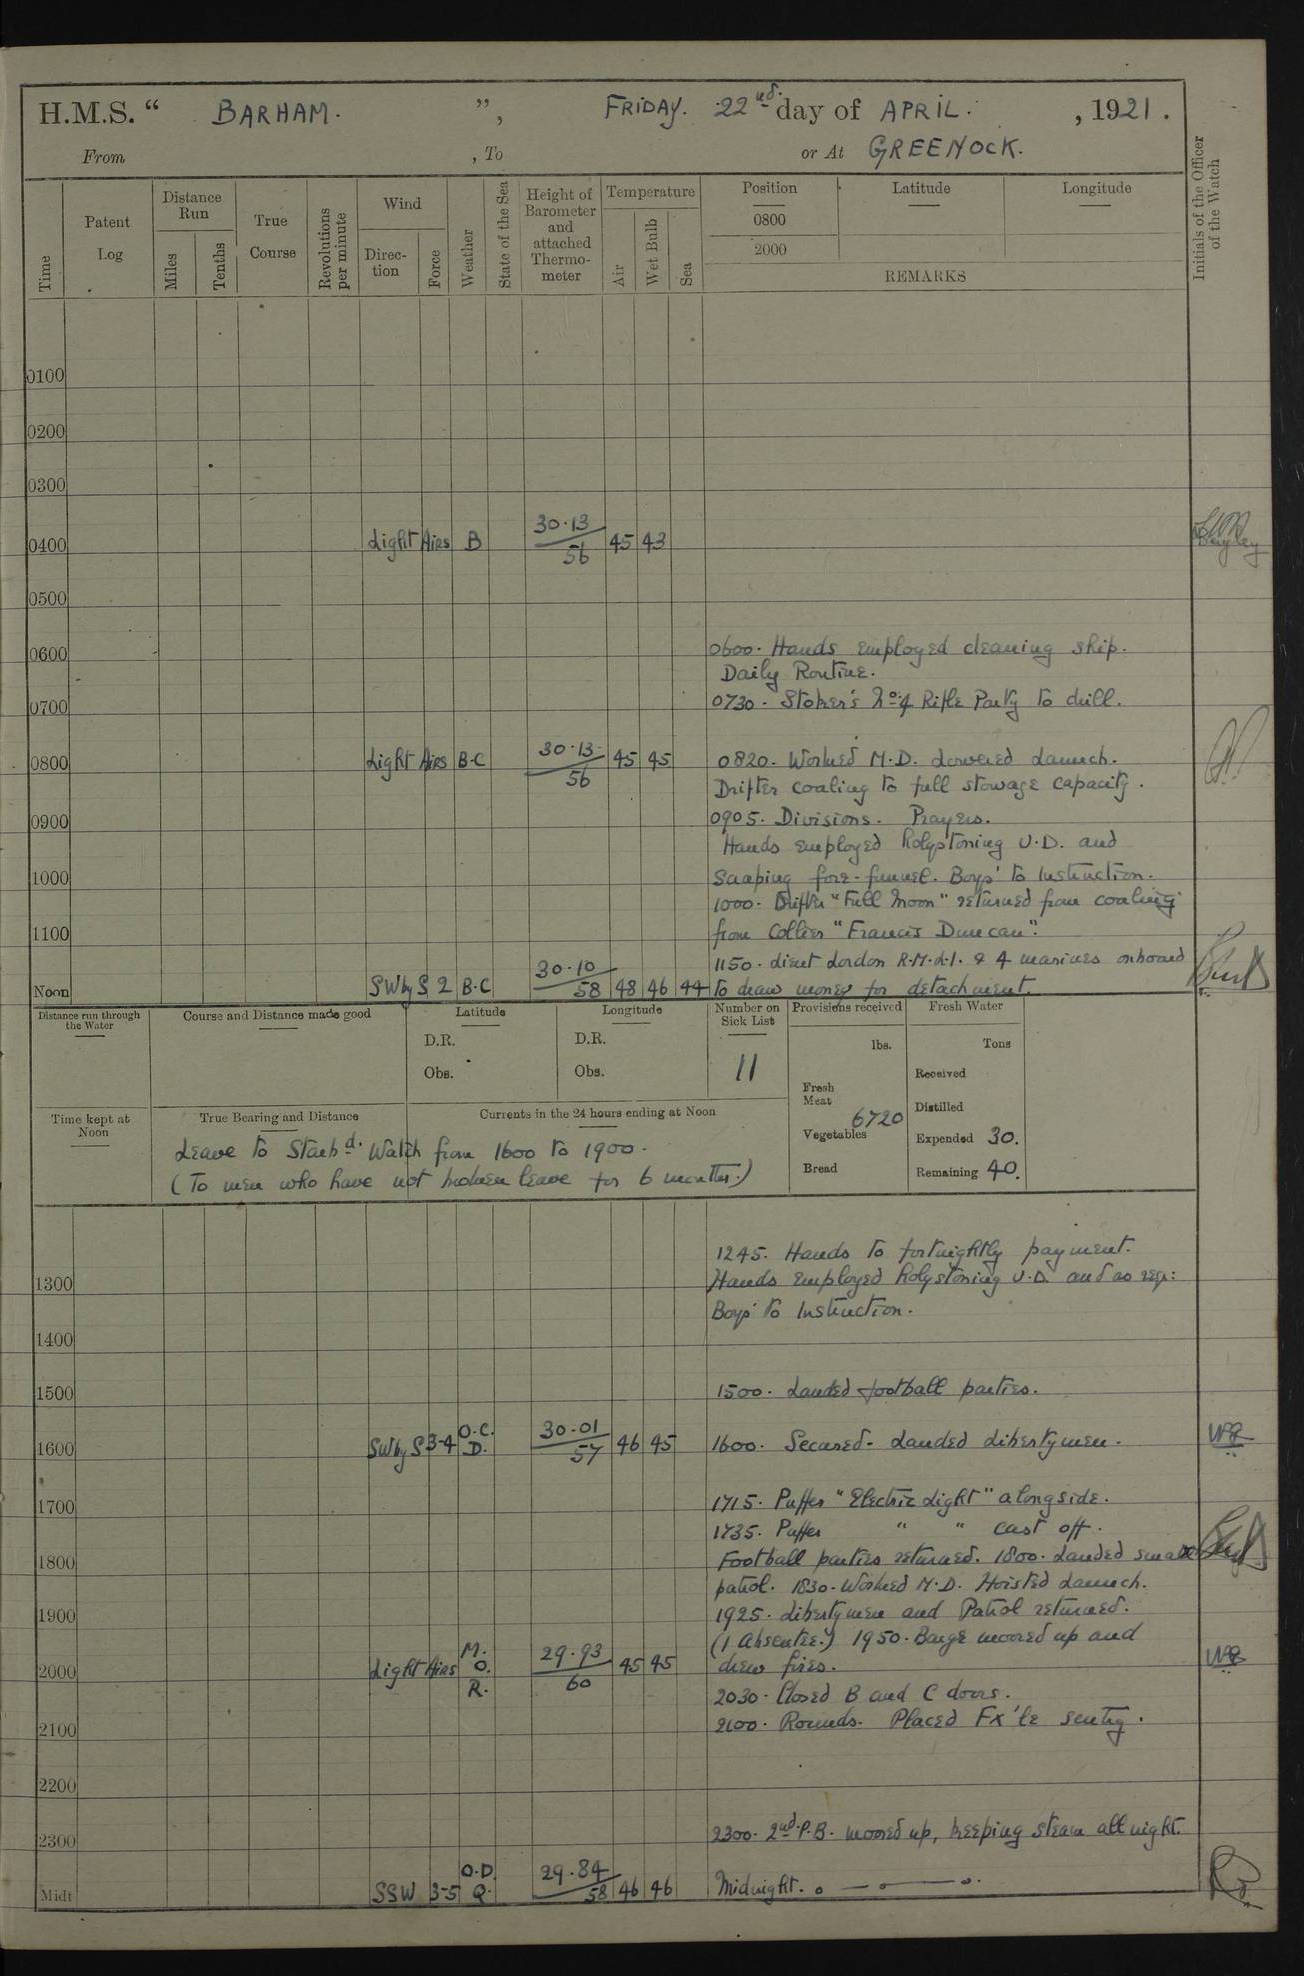 H.M.S. “ BARHAM. ”, FRIDAY. 22nd. day of APRIL. , 1921.
From , To or At GREENOCK.
Time
Patent Log
Distance Run
Miles
Tenths
True Course
Revolutions per minute
Wind
Direction
Force
Weather
State of the Sea
Height of Barometer and attached Thermometer
Temperature
Air
Wet Bulb
Sea
Position
Latitude
Longitude
0800
2000
REMARKS
Initials of the Officer of the Watch
0100
0200
0300
0400 Light Airs B 30.13 56 45 43
0500
0600 0600. Hands employed cleaning ship.
Daily Routine.
0700 0730. Stoker's No. 4 Rifle Party to drill.
0800 Light Airs B.C 30.13 56 45 45 0820. Worked M.D. Lowered Launch.
Drifter coaling to full stowage capacity.
0900 0905. Divisions. Prayers.
Hands employed holystoning U.D. and
1000 Scraping fore-funnel. Boys' to Instruction.
1000. Drifter "Full Moon" returned from coaling
1100 from Collier "Francis Duncan".
1150. Lieut Lordon R.M.L.I. & 4 marines onboard
Noon SW by S 2 B.C 30.10 58 48 46 44 to draw money for detachment.
Distance run through the Water
Course and Distance made good
Latitude
D.R.
Obs.
Longitude
D.R.
Obs.
Number on Sick List
11
Provisions received
lbs.
Fresh Meat
Vegetables 6720
Bread
Fresh Water
Tons
Received
Distilled
Expended 30.
Remaining 40.
Time kept at Noon
True Bearing and Distance
Currents in the 24 hours ending at Noon
Leave to Starbd. Watch from 1600 to 1900.
(To men who have not broken leave for 6 months.)
1245. Hands to fortnightly payment.
1300 Hands employed holystoning U.D. and as req:
Boys' to Instruction.
1400
1500 1500. Landed football parties.
1600 SW by S 3-4 O.C. D. 30.01 57 46 45 1600. Secured. Landed libertymen.
1700 1715. Puffer "Electric Light" alongside.
1735. Puffer " " cast off.
1800 Football parties returned. 1800. Landed small
patrol. 1830. Worked M.D. Hoisted Launch.
1900 1925. Libertymen and Patrol returned.
(1 Absentee.) 1950. Barge moored up and
2000 Light Airs M. O. R. 29.93 60 45 45 drew fires.
2030. Closed B and C doors.
2100 2100. Rounds. Placed Fx'le sentry.
2200
2300 2300. 2nd. P.B. moored up, keeping steam all night.
Midt SSW 3-5 O.D. Q. 29.84 58 46 46 Midnight.